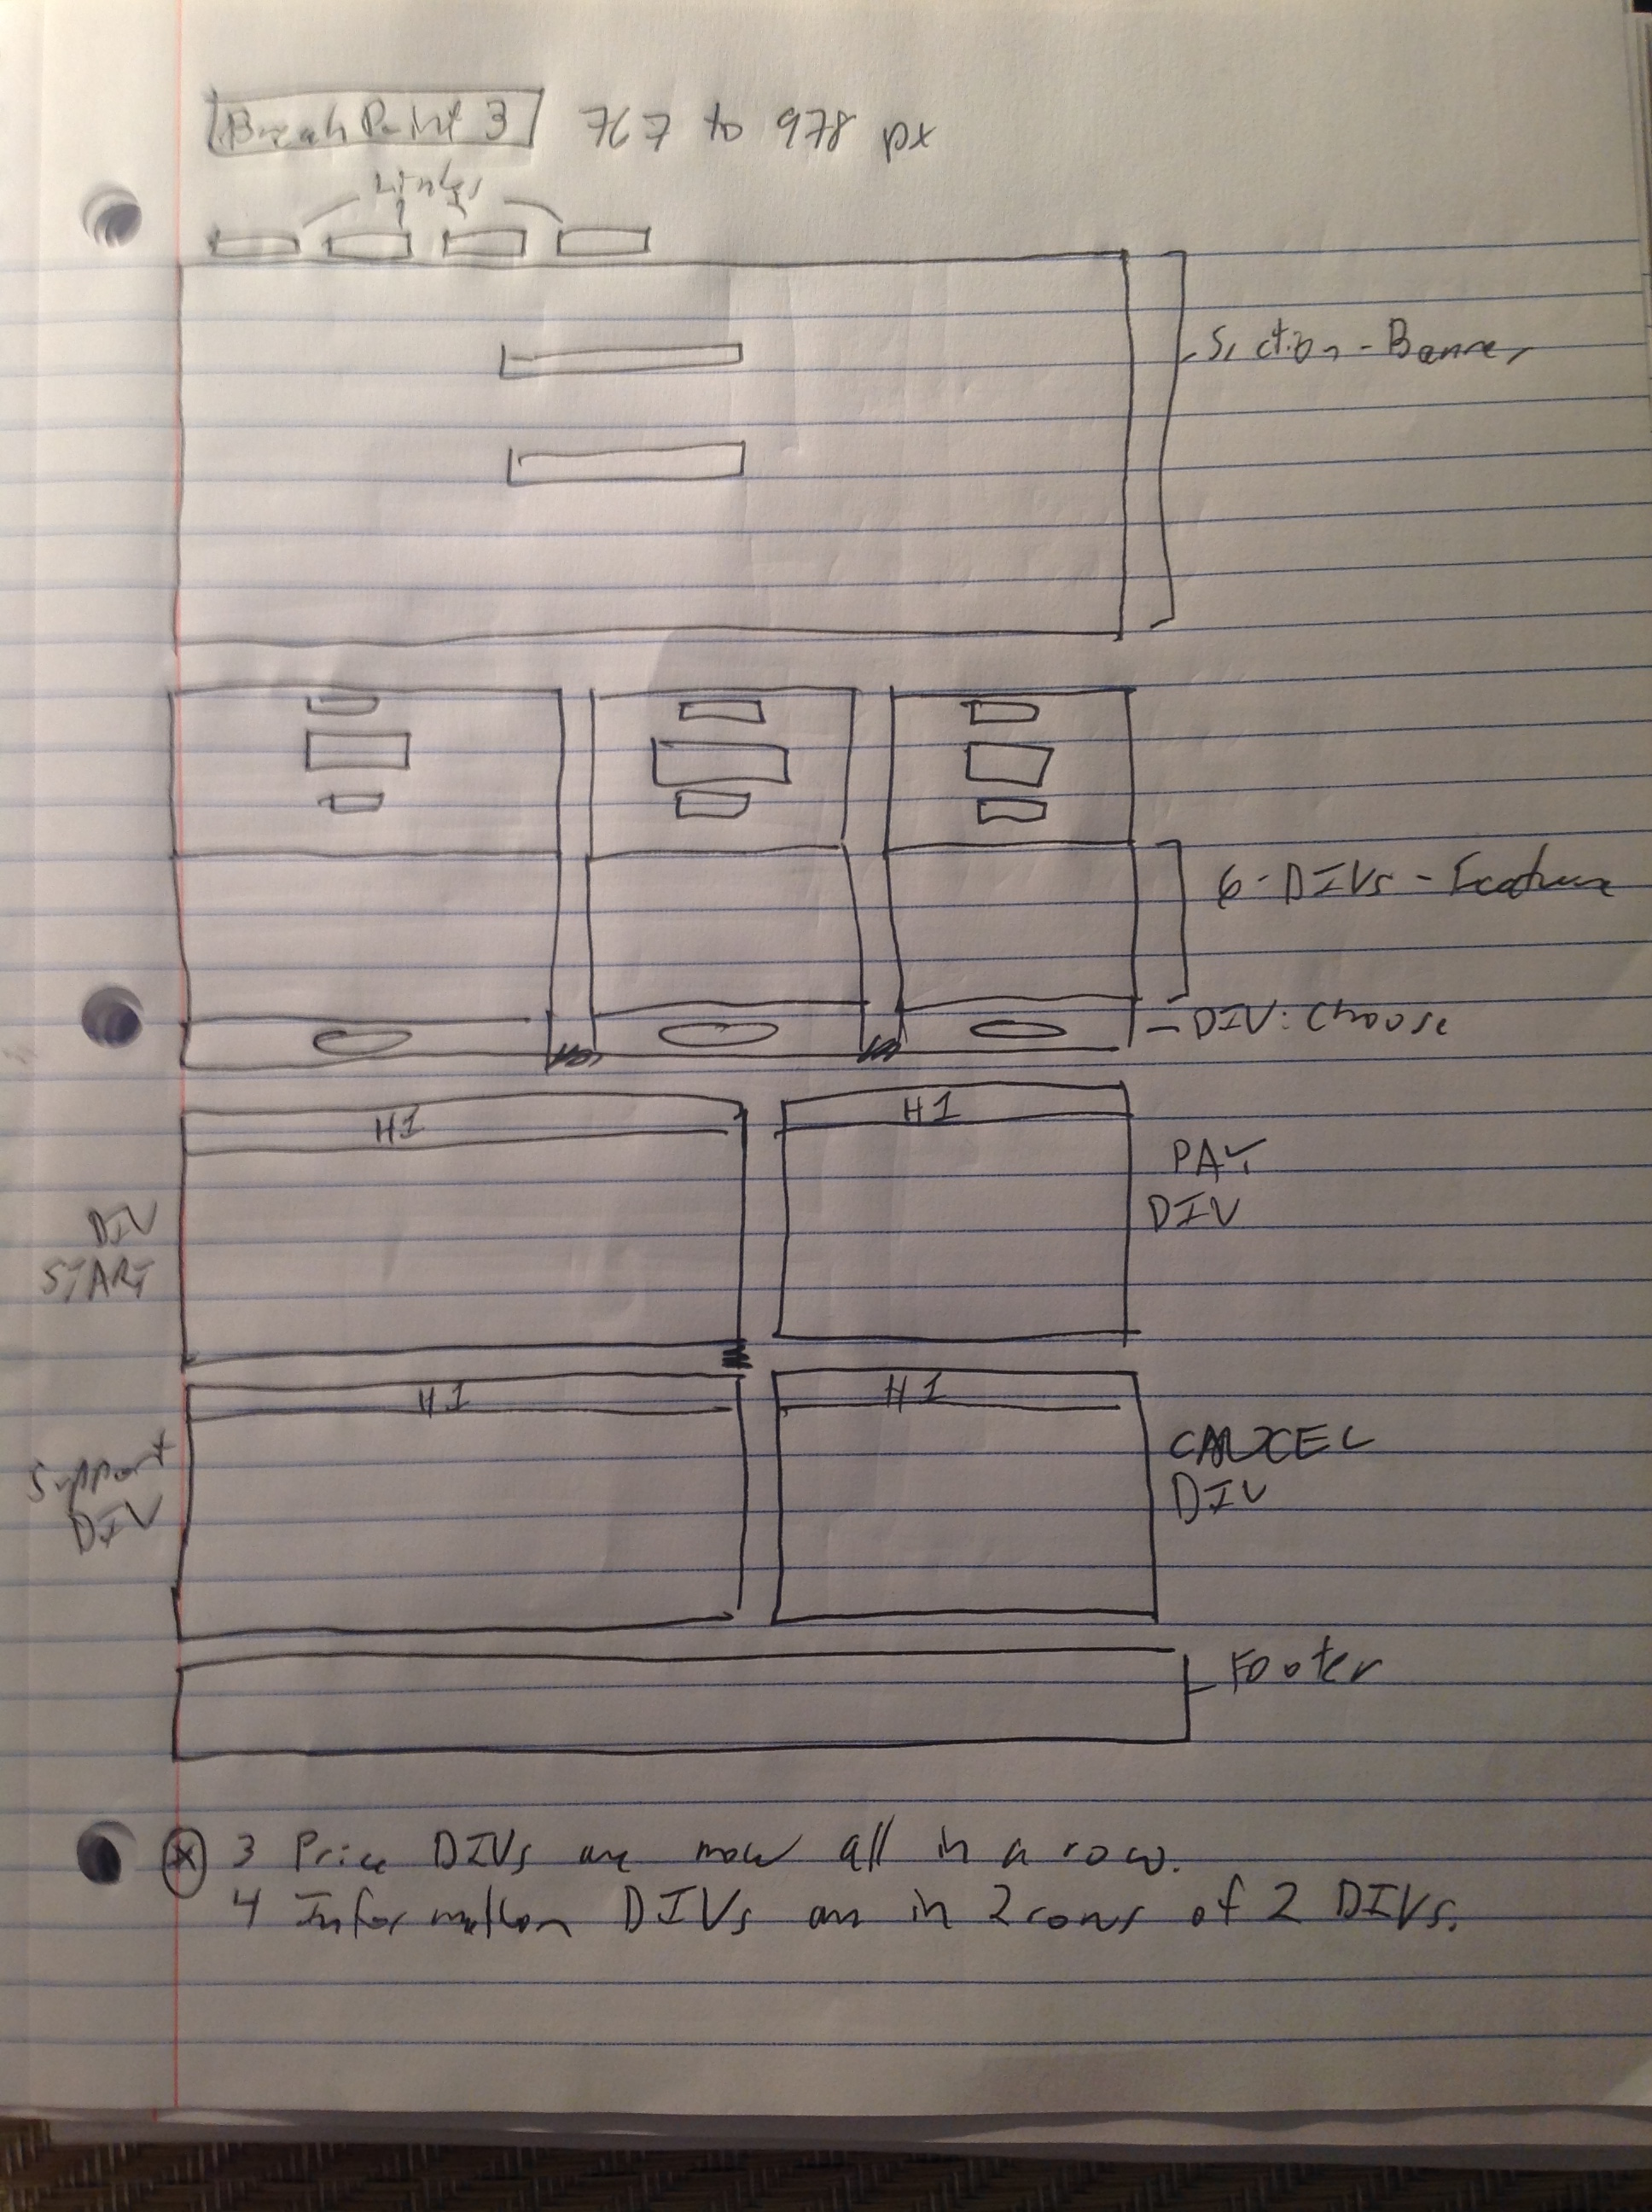 BreakPoint 3 767 to 978 px
Links
Section - Banner
6 - DIVs - Feature
- DIV: Choose
H1
H1
PAY
DIV
DIV
START
H1
H1
Support
DIV
CANCEL
DIV
Footer
* 3 Price DIVs are now all in a row.
4 Information DIVs are in 2 rows of 2 DIVs.